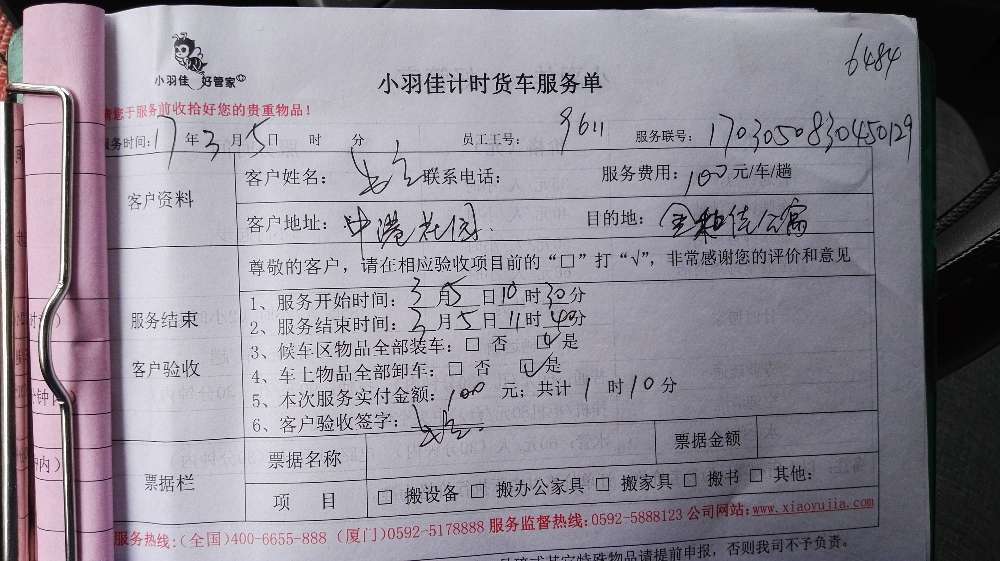 6484
小羽佳 好管家
小羽佳计时货车服务单
请您于服务前收拾好您的贵重物品！
服务时间：17 年 3 月 5 日 时 分 员工工号： 9611 服务联号： 1703050830450129
客户资料
客户姓名： 联系电话： 服务费用：100元/车/趟
客户地址：中港花园 目的地：金和佳公寓
服务结束
客户验收
尊敬的客户，请在相应验收项目前的“□”打“√”，非常感谢您的评价和意见
1、服务开始时间：3 月 5 日 10 时 30 分
2、服务结束时间：3 月 5 日 11 时 40 分
3、候车区物品全部装车：□ 否 ☑ 是
4、车上物品全部卸车：□ 否 ☑ 是
5、本次服务实付金额：100 元；共计 1 时 10 分
6、客户验收签字：
票据栏
票据名称 票据金额
项 目 □ 搬设备 □ 搬办公家具 □ 搬家具 □ 搬书 □ 其他：
服务热线：(全国)400-6655-888 (厦门)0592-5178888 服务监督热线:0592-5888123 公司网站:www.xiaoyujia.com
特殊物品请提前申报，否则我司不予负责。